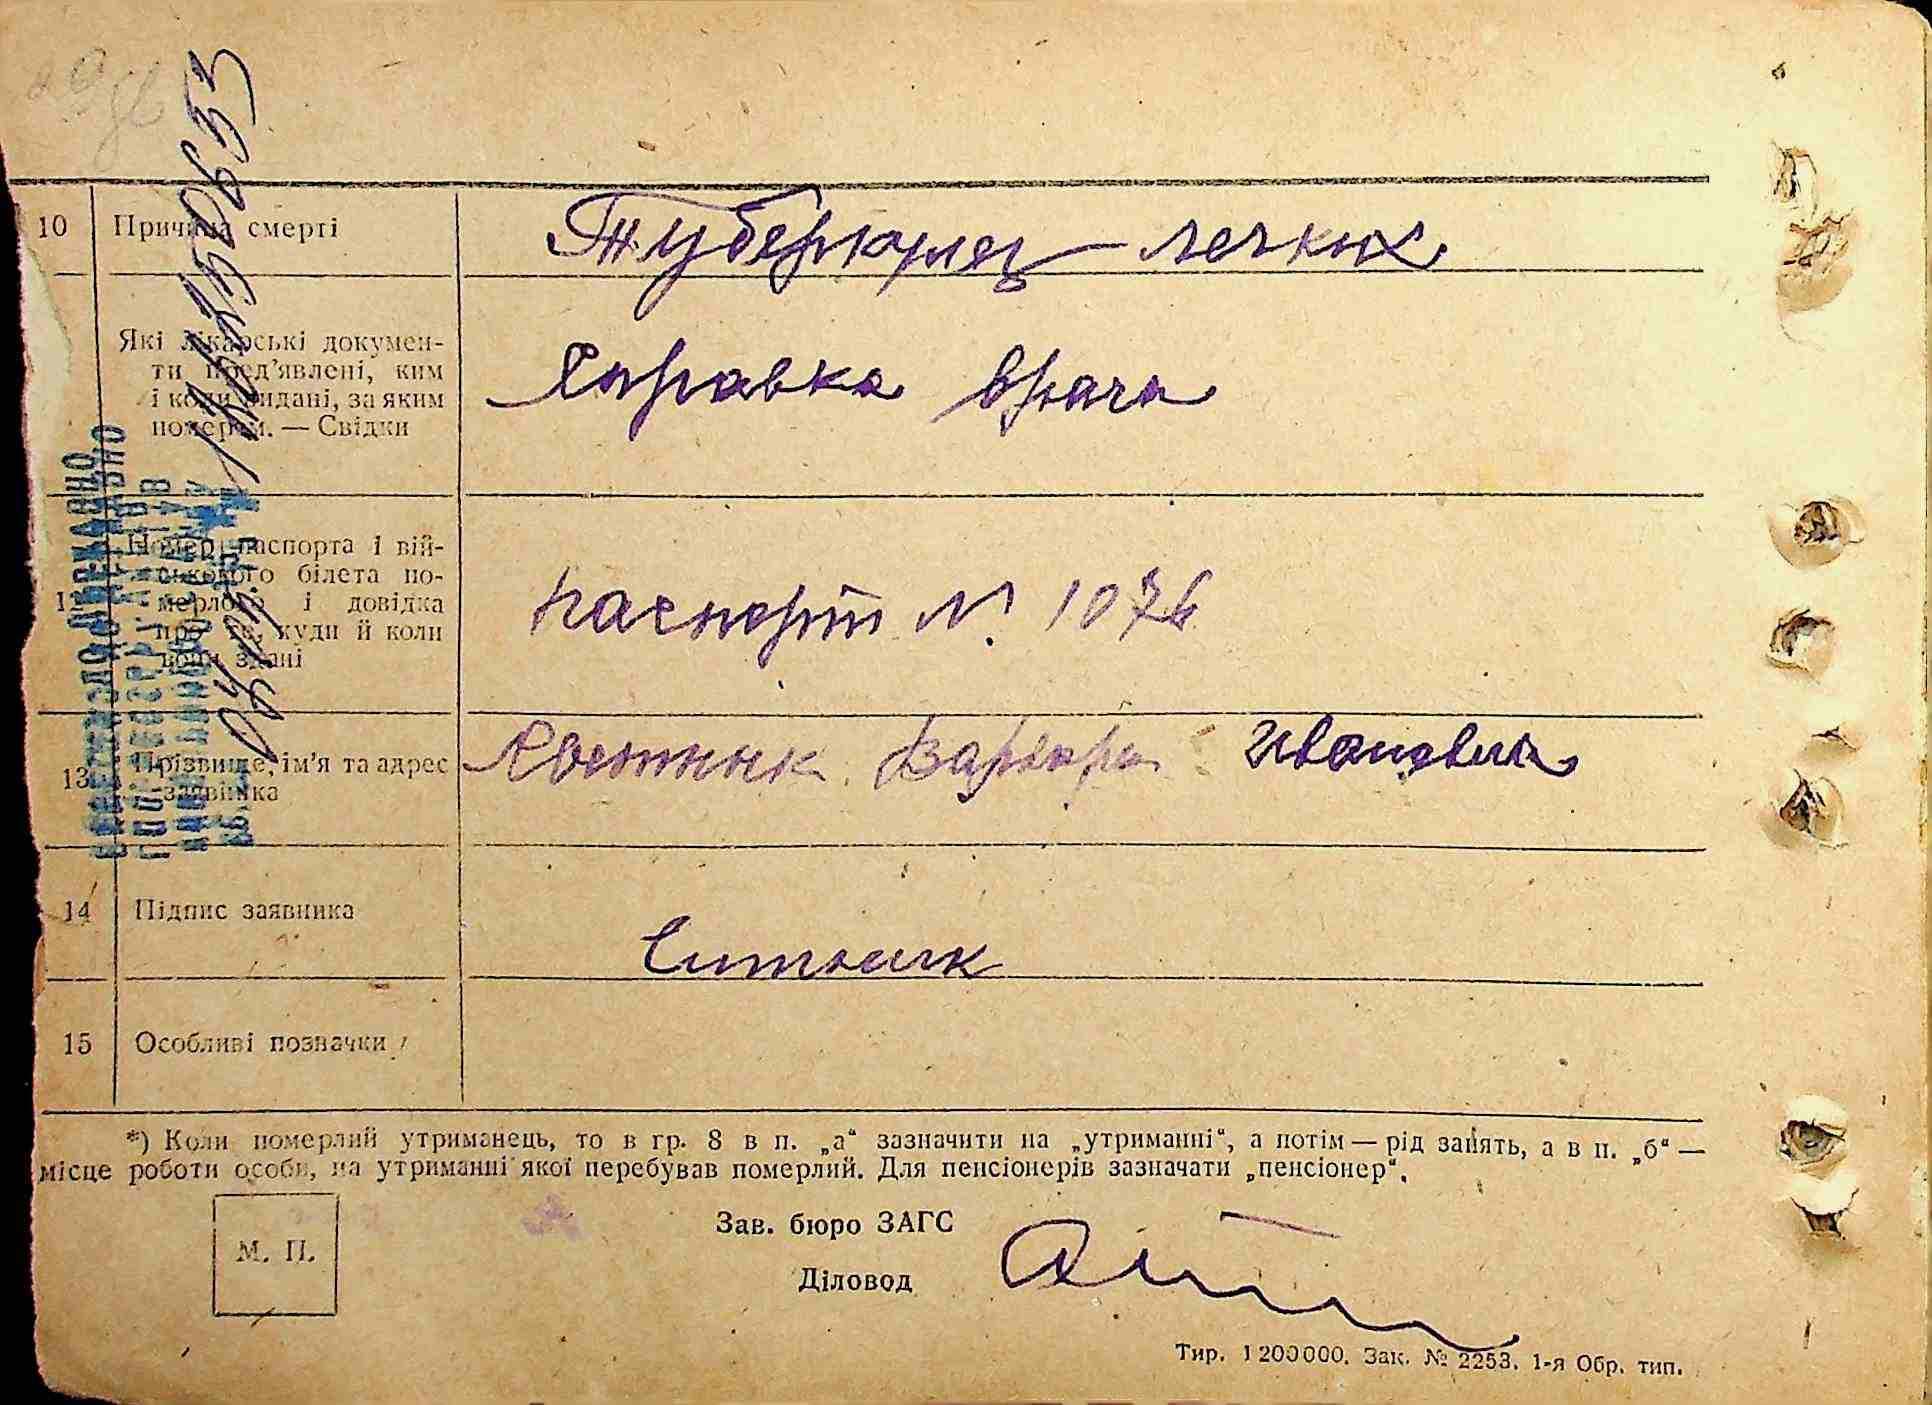 10 Причина смерті Туберкулез легких
Які лікарські докумен-
ти пред'явлені, ким
і коли видані, за яким
номером. — Свідки
Справка врача
Номер паспорта і вій-
ськового білета по-
мерлого і довідка
про те, куди й коли
вони здані
паспорт № 1076
13 Прізвище, ім'я та адрес
заявника
Варвара Ивановна
14 Підпис заявника
Ситник
15 Особливі позначки
*) Коли померлий утриманець, то в гр. 8 в п. „а“ зазначити на „утриманні“, а потім — рід занять, а в п. „б“ —
місце роботи особи, на утриманні якої перебував померлий. Для пенсіонерів зазначати „пенсіонер“.
М. П.
Зав. бюро ЗАГС
Діловод
Тир. 1200000. Зак. № 2253. 1-я Обр. тип.